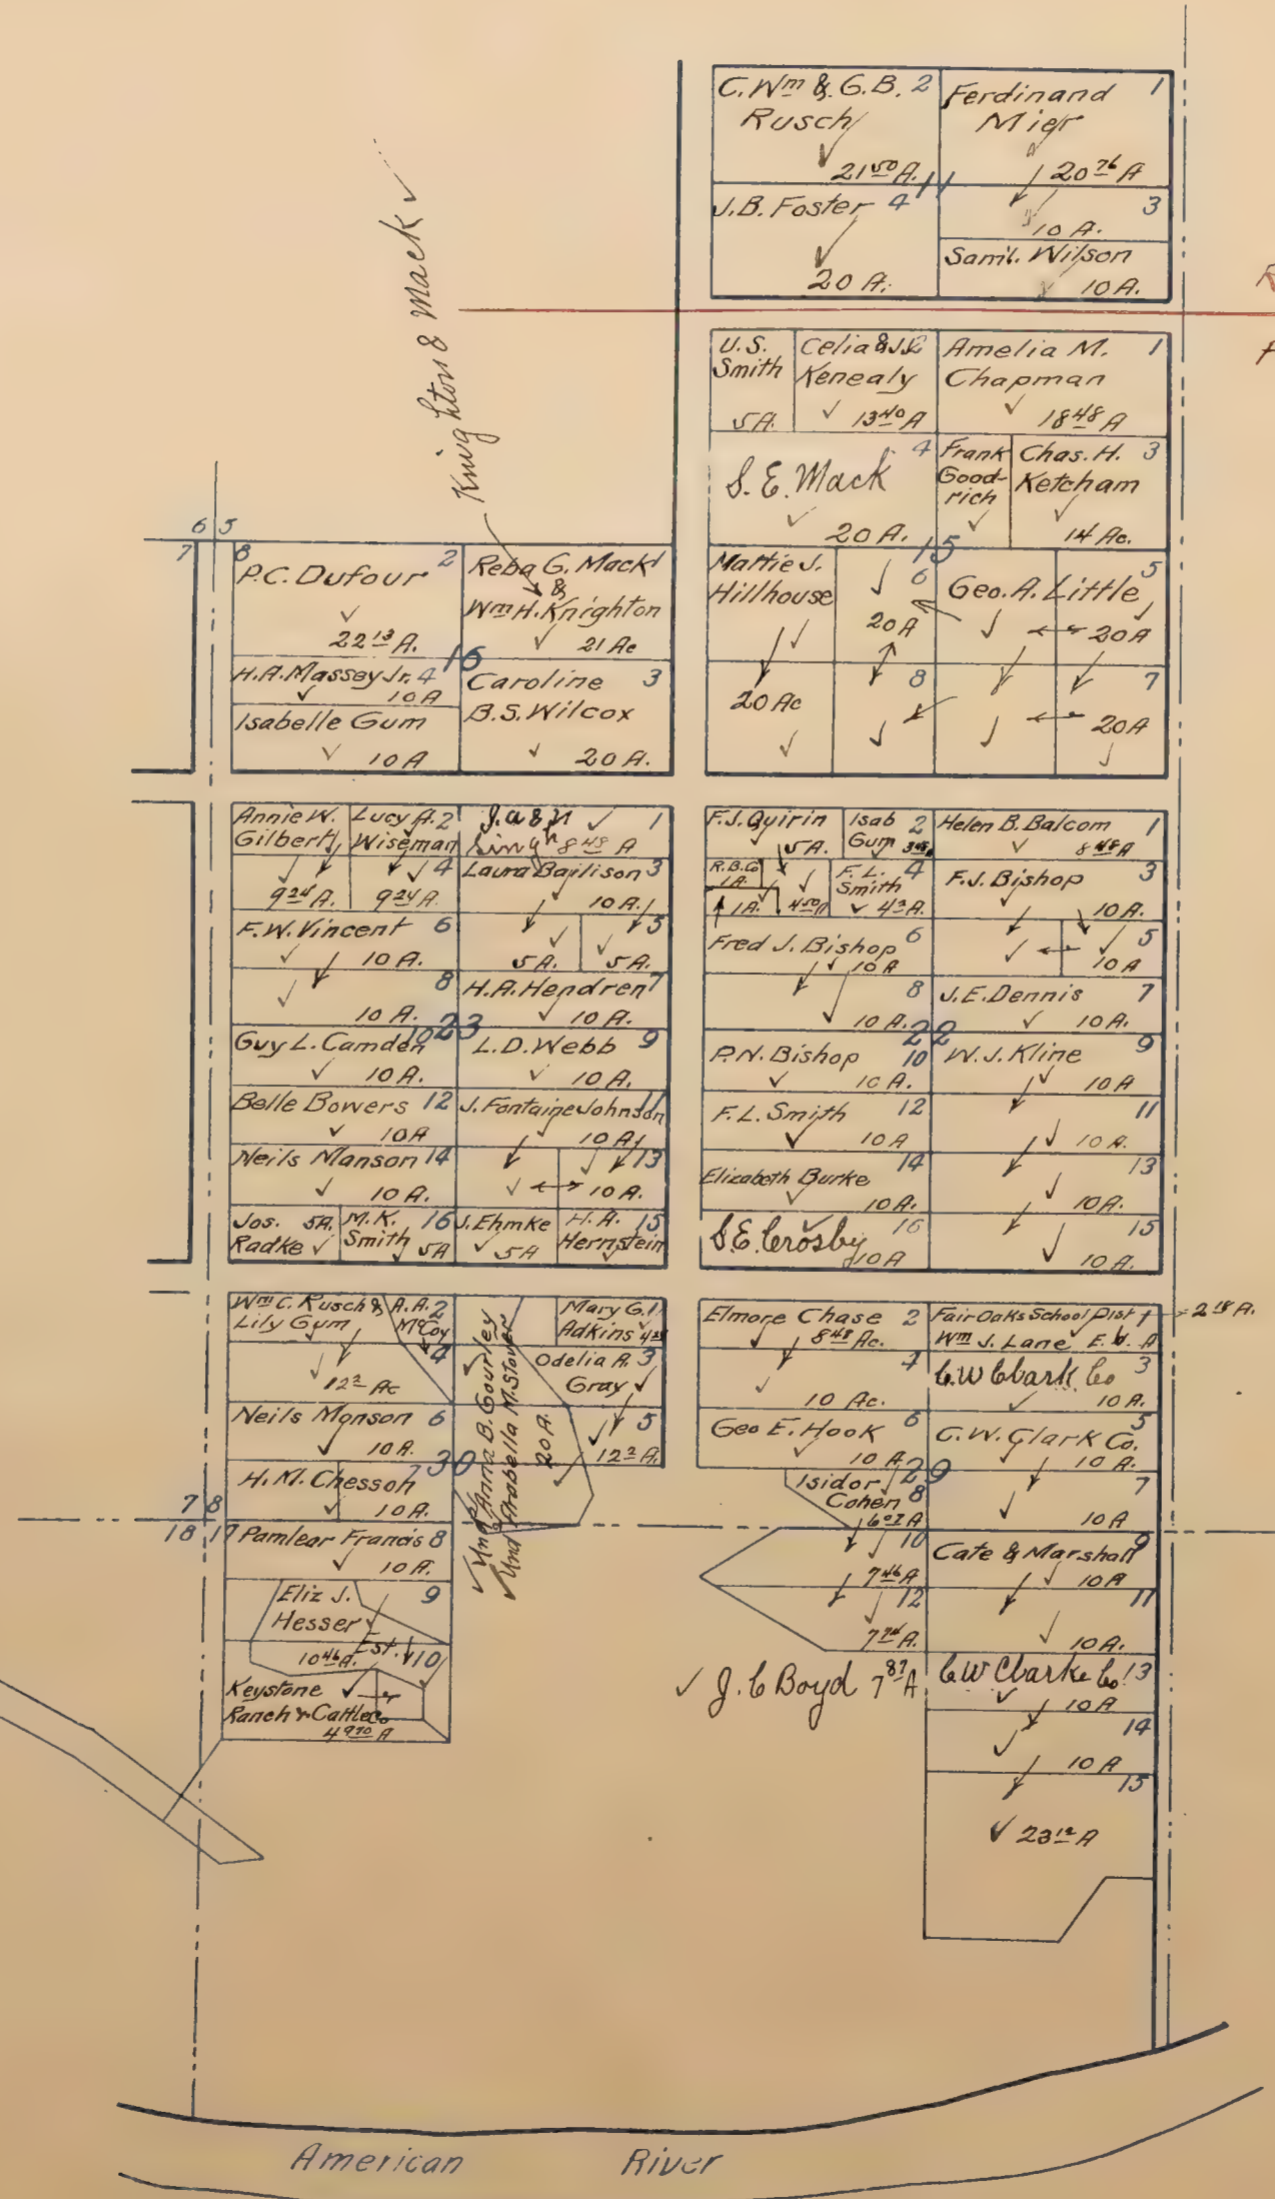 C. Wm & G.B. 2
Rusch
21 50 A.
11
Ferdinand 1
Mier
20 76 A
J.B. Foster 4
20 A.
3
10 A.
Saml. Wilson
10 A.
Knighton & Mack
U.S.
Smith
5 A.
Celia & J. 2
Kenealy
13 40 A
Amelia M. 1
Chapman
18 48 A
S.E. Mack 4
20 A.
15
Frank
Good-
rich
Chas. H. 3
Ketcham
14 Ac.
Mattie J.
Hillhouse
20 Ac
6
20 A
8
Geo. A. Little 5
20 A
7
20 A
6 5
7 8
P.C. Dufour 2
22 13 A.
16
Reba G. Mack 1
&
Wm H. Knighton
21 Ac
H.A. Massey Jr. 4
10 A
Isabelle Gum
10 A
Caroline 3
B.S. Wilcox
20 A.
Annie W.
Gilbert
9 24 A.
Lucy A. 2
Wiseman
4
9 24 A.
J.A & N 1
Singh 8 48 A
Laura Bailison 3
10 A.
5
5 A. 5 A.
F.W. Vincent 6
10 A.
8
10 A.
23
H.A. Hendren 7
10 A.
Guy L. Camden 10
10 A.
L.D. Webb 9
10 A.
Belle Bowers 12
10 A
J. Fontaine Johnson 11
10 A.
Neils Manson 14
10 A.
13
10 A.
Jos. 5A.
Radke
M.K. 16
Smith 5A
J. Ehmke
5A
H.A. 15
Hernstein
F.J. Quirin
5 A.
Isab 2
Gum
Helen B. Balcom 1
8 48 A
R.B. Co
1 A.
1 A.
4 50 A
F.L. 4
Smith
F.J. Bishop 3
10 A.
5
10 A
Fred J. Bishop 6
10 A
8
10 A.
22
J.E. Dennis 7
10 A.
P.N. Bishop 10
10 A.
W.J. Kline 9
10 A
F.L. Smith 12
10 A
11
10 A.
Elizabeth Burke 14
10 A.
13
10 A.
S.E. Crosby 16
10 A
15
10 A.
Wm C. Rusch &
Lily Gum
A.A. 2
McCoy
4
Ac
Und Anna B. Gourley
Und Arabella M. Stover
20 A.
Mary G. 1
Adkins
Odelia A. 3
Gray
5
Neils Monson 6
10 A.
30
H.M. Chesson 7
10 A.
7 8
18 17
Pamlear Francis 8
10 A.
Eliz J. 9
Hesser
Est. 10
10 46 A.
Keystone
Ranch & Cattle Co.
49 70 A
Elmore Chase 2
8 48 Ac.
4
10 Ac.
Fair Oaks School Dist 1
2 18 A.
Wm J. Lane
C.W Clark Co 3
10 A.
Geo E. Hook 6
10 A
29
C.W. Clark Co. 5
10 A.
Isidor
Cohen 8
7
10 A
10
7 46 A
Cate & Marshall 9
10 A
12
11
10 A.
J.C Boyd 7 87 A
C.W Clarke Co. 13
10 A
14
10 A
15
23 12 A
American River